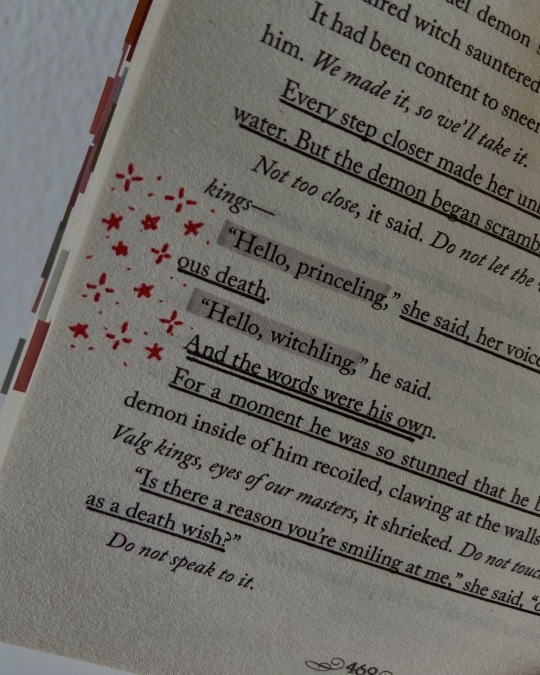 demon
witch sauntered
It had been content to sneer
him. We made it, so we'll take it.
Every step closer made her
water. But the demon began
Not too close, it said. Do not let the
kings—
"Hello, princeling," she said, her voice
ous death.
"Hello, witchling," he said.
And the words were his own.
For a moment he was so stunned that he
demon inside of him recoiled, clawing at the walls
Valg kings, eyes of our masters, it shrieked. Do not touch
"Is there a reason you're smiling at me," she said, "
as a death wish?"
Do not speak to it.
469